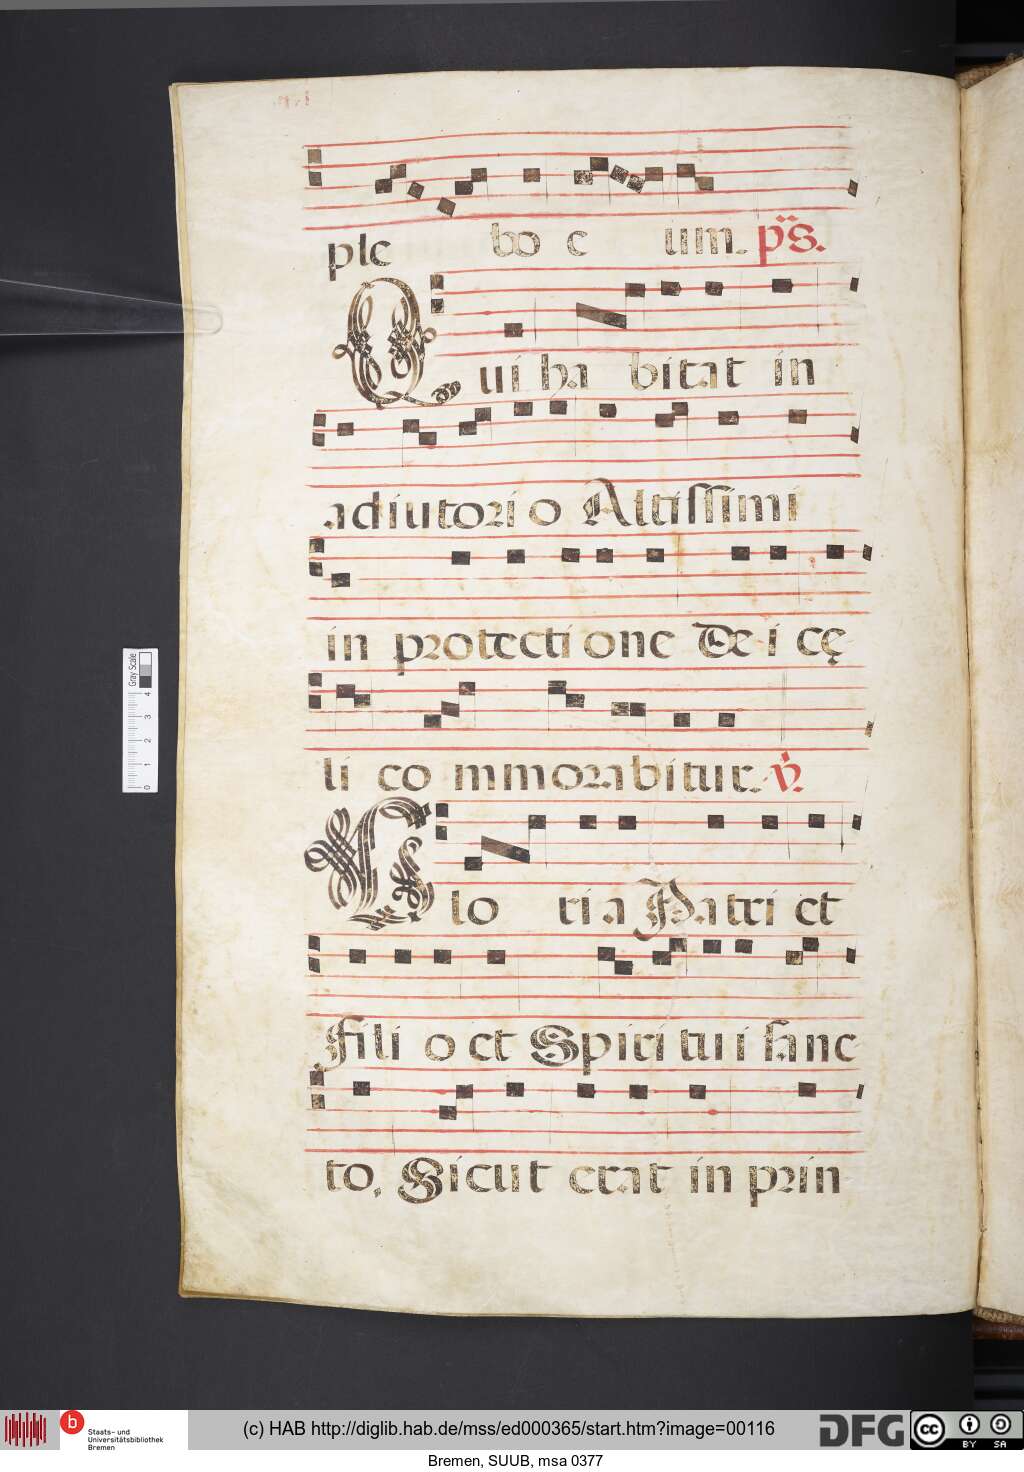 ple bo e um. ps.
Qui ha bitat in
adiutorio Altissimi
in protectione Dei cę
li co mmorabitur. ℣
Glo ria Patri et
Fili o et Spiritui sanc
to, Sicut erat in prin
Gray Scale
0 1 2 3 4
b Staats- und Universitätsbibliothek Bremen
(c) HAB http://diglib.hab.de/mss/ed000365/start.htm?image=00116
DFG
cc BY SA
Bremen, SUUB, msa 0377